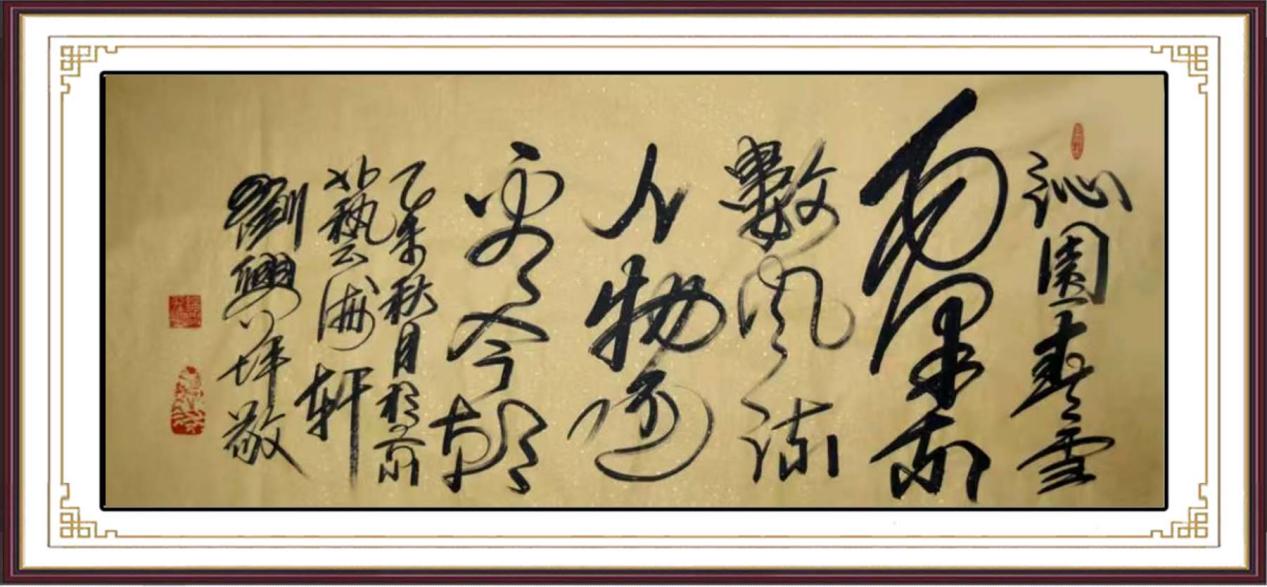 沁園春雪
俱往矣
數風流
人物還
看今朝
乙未秋月於京
北藝海轩
劉興坪敬